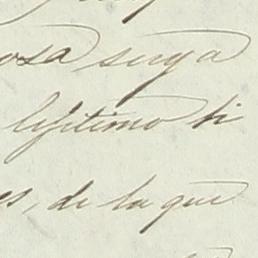 osa suya
lejitimo hi
es, de la que